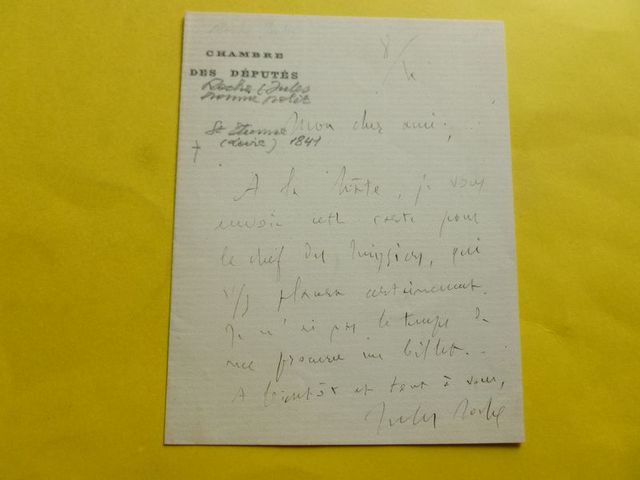 8/4
CHAMBRE
DES DÉPUTÉS
Roche (Jules
homme polit
St Etienne
(Loire) 1841
Mon cher ami,
A la hâte, je vous
envoie cette carte pour
le chef des huissiers, qui
vs placera certainement.
Je n'ai pas le temps de
me procurer un billet.
A bientôt et tout à vous,
Jules Roche